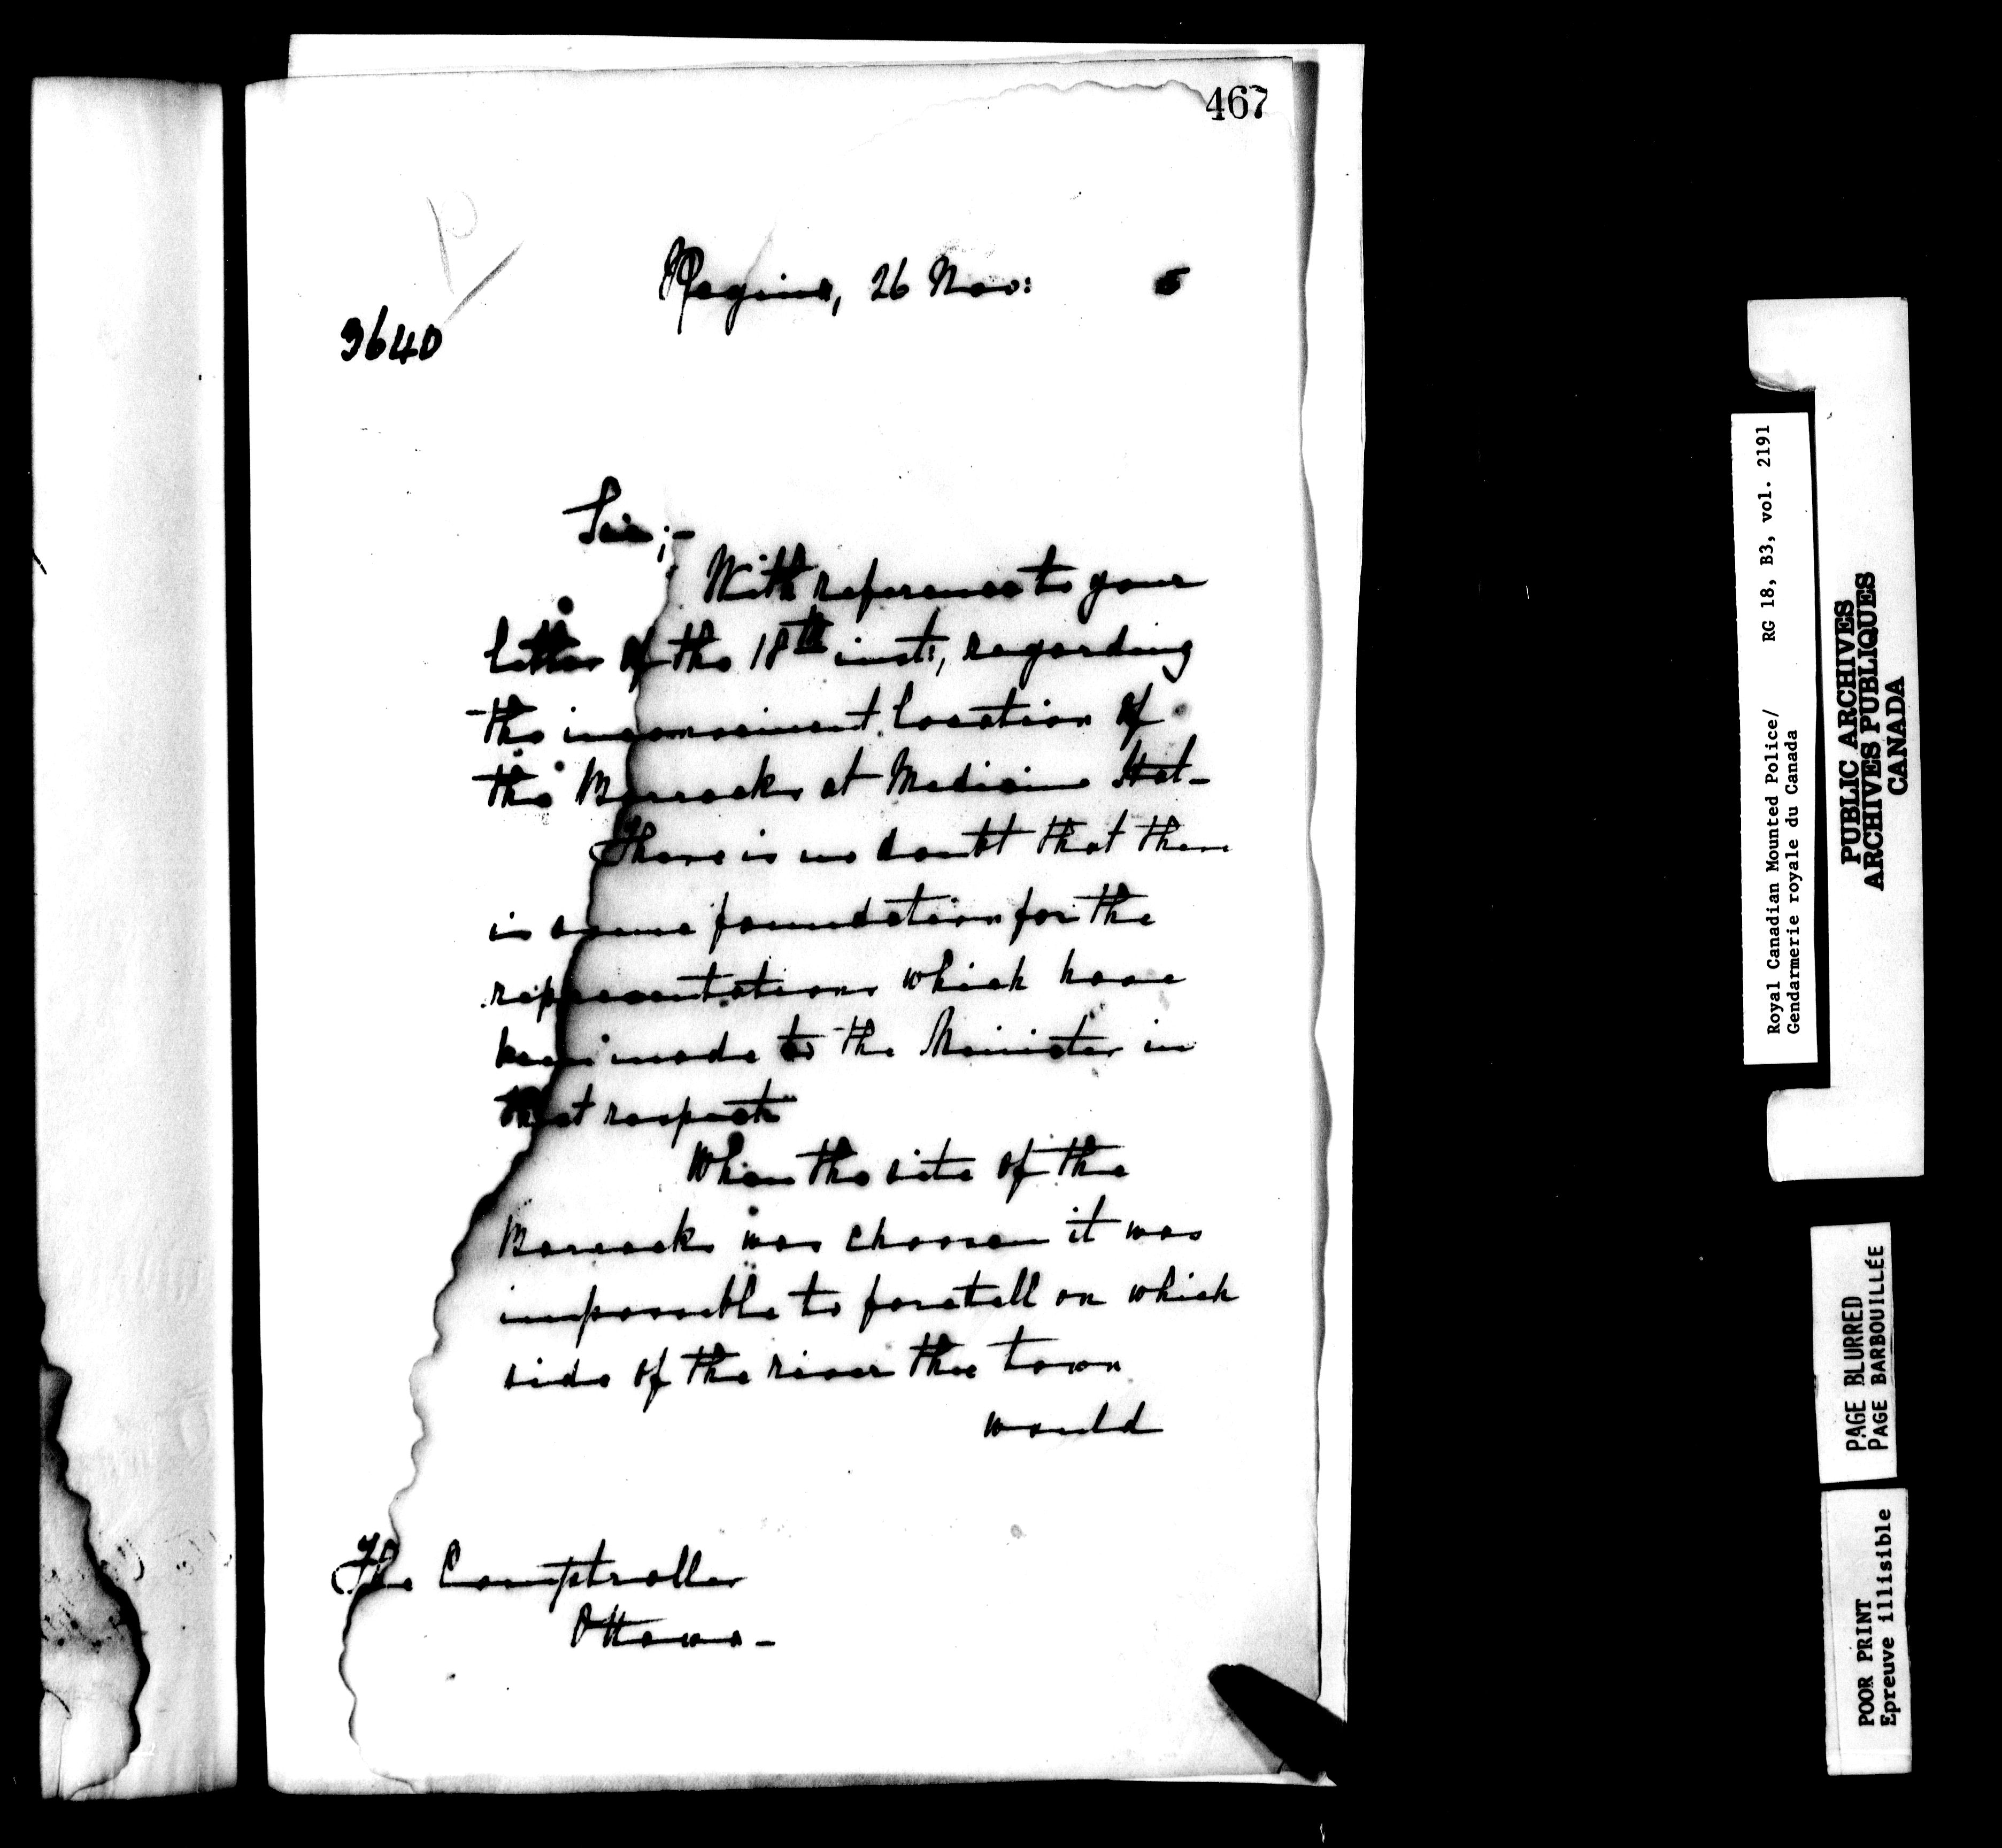 467
Regina, 26 Nov: 5
3640
Sir;-
With reference to your
letter of the 18th inst:, regarding
the inconvenient location of
the Barracks at Medicine Hat-
There is no doubt that there
is some foundation for the
representations which have
been made to the Minister in
that respect
When the site of the
Barracks was choosen it was
impossible to foretell on which
side of the river the town
would
The Comptroller
Ottawa-
Royal Canadian Mounted Police/ RG 18, B3, vol. 2191
Gendarmerie royale du Canada
PUBLIC ARCHIVES
ARCHIVES PUBLIQUES
CANADA
PAGE BLURRED
PAGE BARBOUILLÉE
POOR PRINT
Epreuve illisible